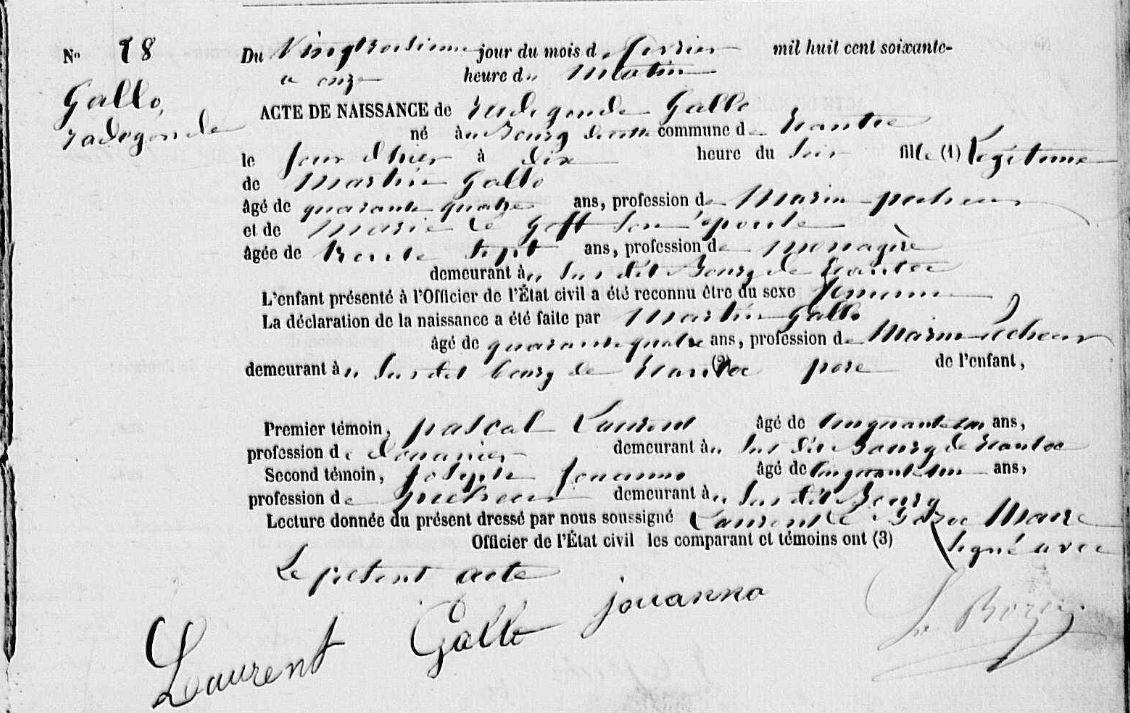 No 18
Du Vingtroisieme jour du mois de fevrier mil huit cent soixante-
a onze heure du Matin
Gallo,
radegonde
ACTE DE NAISSANCE de radegonde Gallo
né au Bourg de cette commune de
le jour d'hier à dix heure du soir fille (1) Légitime
de Martin Gallo
âgé de quarante quatre ans, profession de Marin pecheur
et de Marie Le Goff son épouse
âgée de trente sept ans, profession de menagère
demeurant à au susdit Bourg de
L'enfant présenté à l'Officier de l'État civil a été reconnu être du sexe feminin
La déclaration de la naissance a été faite par Martin Gallo
âgé de quarante quatre ans, profession de Marin Pêcheur
demeurant à au susdit bourg de (2) père de l'enfant,
Premier témoin, pascal Laurent âgé de ans,
profession de Douanier demeurant à au susdit Bourg de
Second témoin, Joseph Jouanno âgé de ans,
profession de pecheur demeurant à au susdit Bourg
Lecture donnée du présent dressé par nous soussigné Laurent Le Maire
Officier de l'État civil les comparant et témoins ont (3) signé avec
Le présent acte
Laurent Gallo jouanno Le